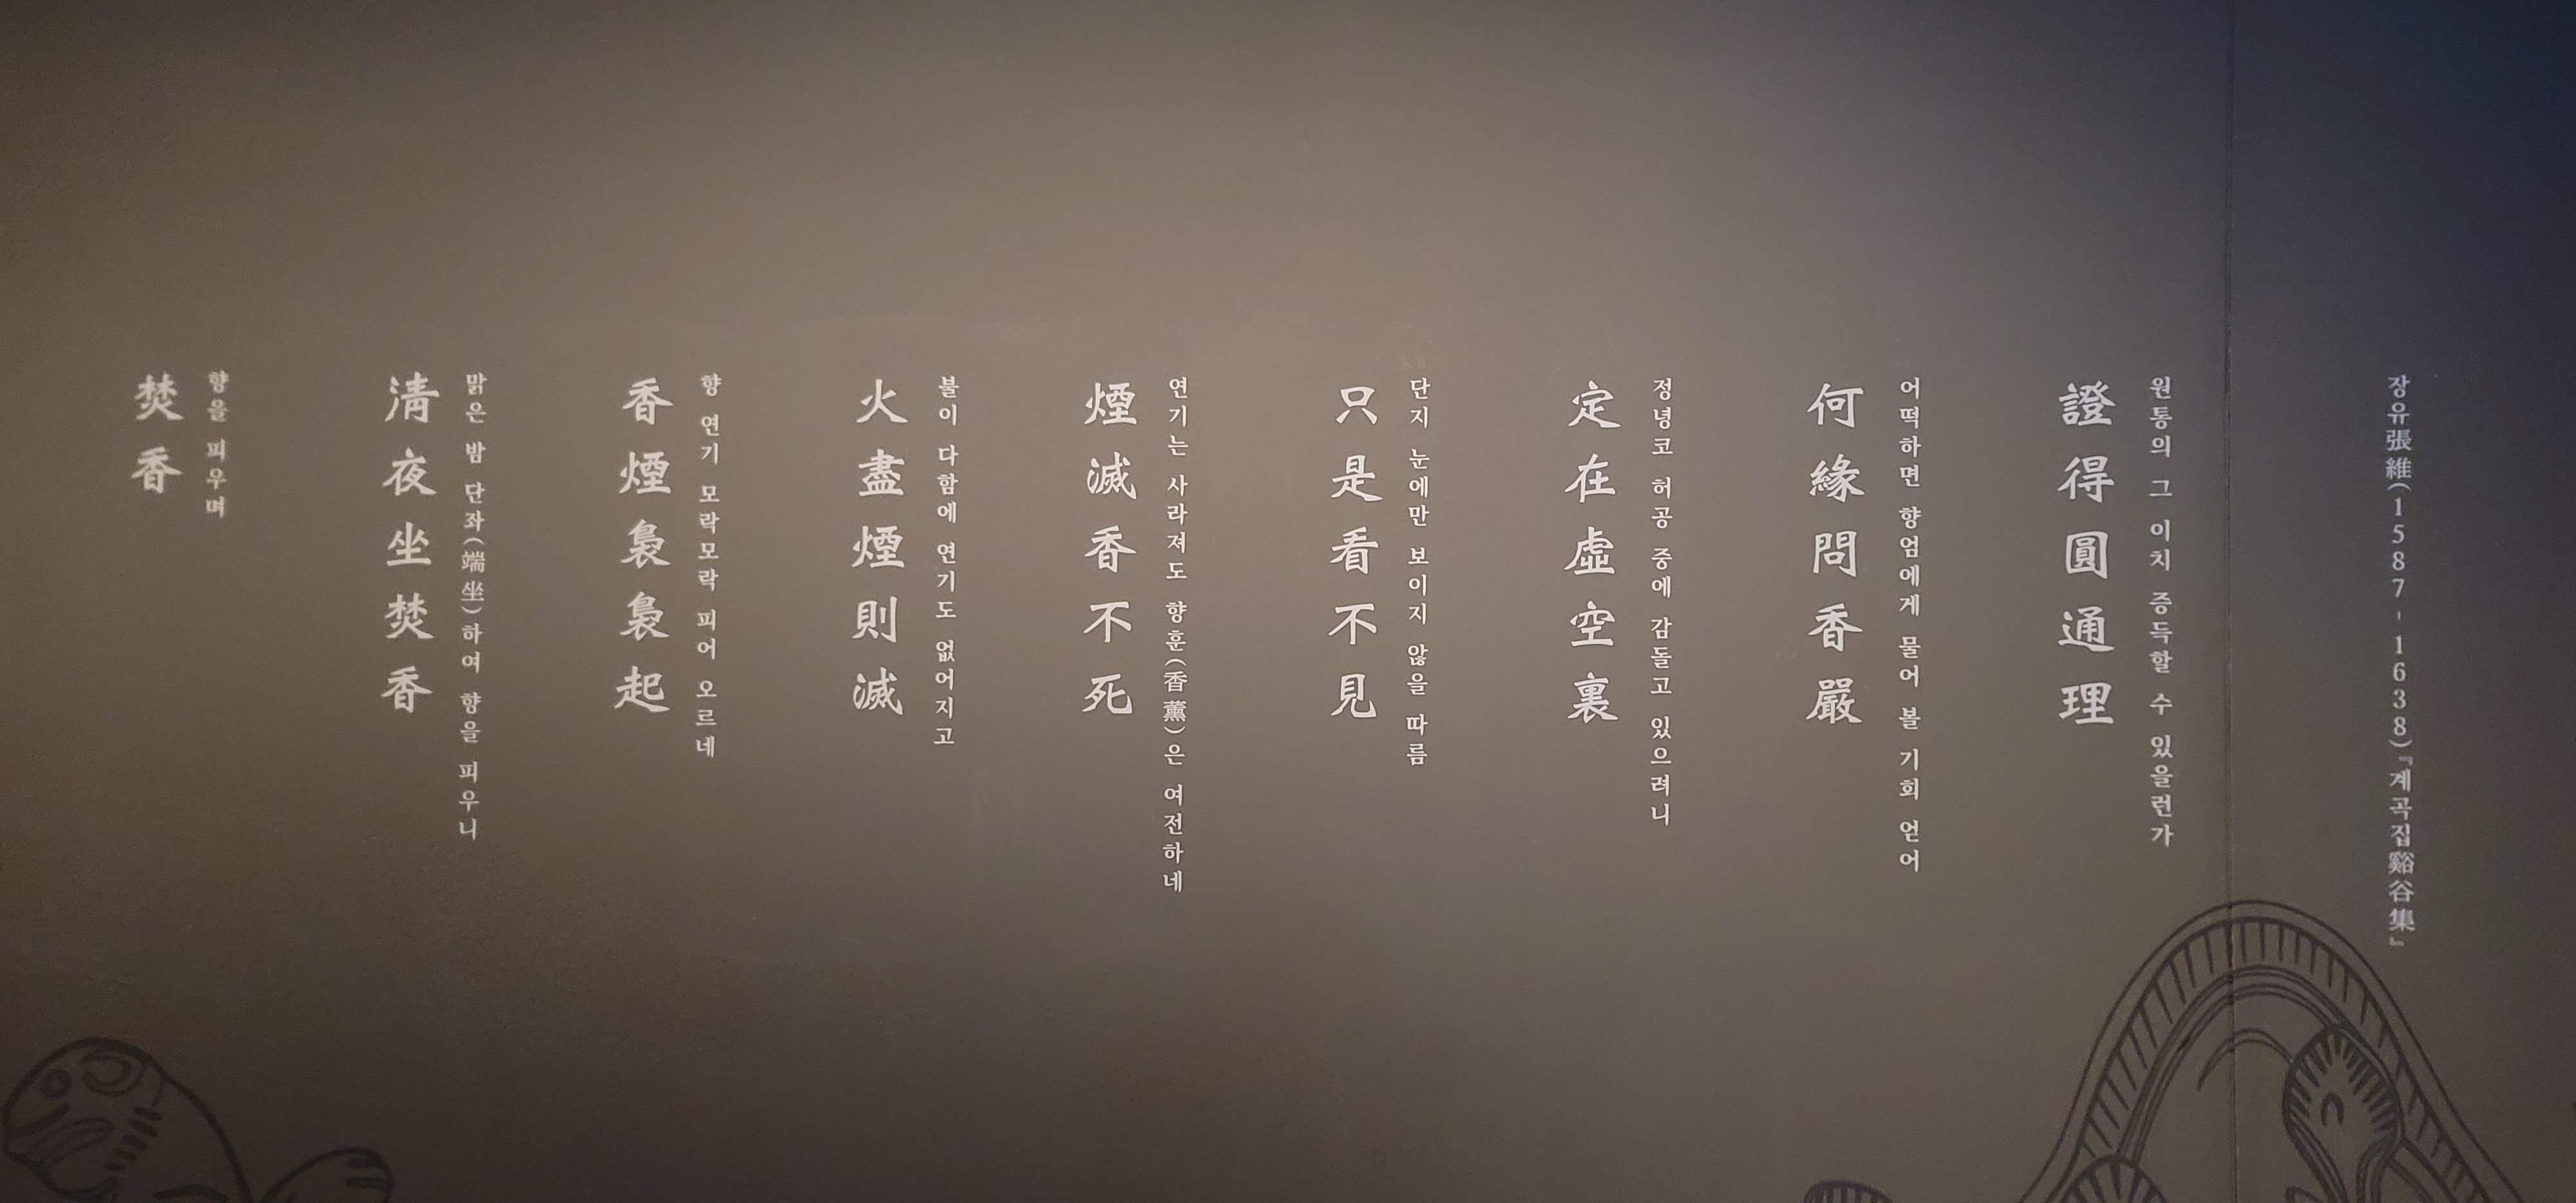 焚香
향을 피우며
淸夜坐焚香
맑은 밤 단좌(端坐)하여 향을 피우니
香煙裊裊起
향 연기 모락모락 피어 오르네
火盡煙則滅
불이 다함에 연기도 없어지고
煙滅香不死
연기는 사라져도 향훈(香薰)은 여전하네
只是看不見
단지 눈에만 보이지 않을 따름
定在虛空裏
정녕코 허공 중에 감돌고 있으려니
何緣問香嚴
어떡하면 향엄에게 물어 볼 기회 얻어
證得圓通理
원통의 그 이치 증득할 수 있을런가
장유張維(1587-1638)『계곡집谿谷集』